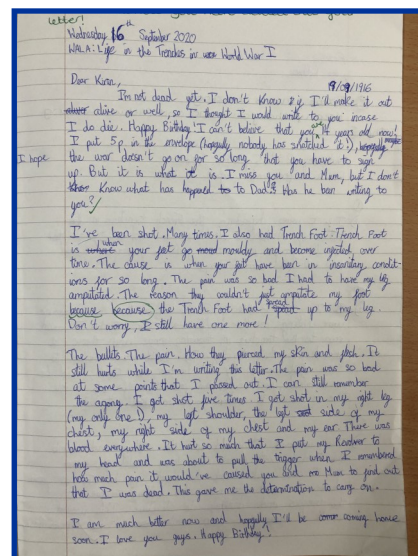 letter!
Wednesday 16th September 2020
WALA: Life in the Trenches in World War I
Dear Kian, 19/09/1916
I'm not dead yet. I don't know if I'll make it out
alive or well, so I thought I would write to you incase
I do die. Happy Birthday! I can't believe that you 14 years old now!
I put 5p in the envelope (hopefully nobody has snatched it!),
I hope the war doesn't go on for so long that you have to sign
up. But it is what it is. I miss you and Mum, but I don't
know what has happened to Dad. Has he ben writing to
you?
I've been shot. Many times. I also had Trench Foot. Trench Foot
is when your feet go mouldy and become infected, over
time. The cause is when your feet have been in insanitary condit-
ions for so long. The pain was so bad I had to have my leg
ampitated. The reason they couldn't just ampitate my foot
because because the Trench Foot had spread up to my leg.
Don't worry, I still have one more!
The bullits. The pain. How they pierced my skin and flesh. It
still hurts while I'm writing this letter. The pain was so bad
at some points that I passed out. I can still remember
the agony. I got shot five times. I got shot in my right leg
(my only one!), my left shoulder, the left side of my
chest, my right side of my chest and my ear. There was
blood everywhere. It hurt so much that I put my Revolver to
my head and was about to pull the trigger when I remembered
how much pain it would've caused you and Mum to find out
that I was dead. This gave me the determination to carry on.
I am much better now and hopefully I'll be coming home
soon. I love you guys. Happy Birthday!